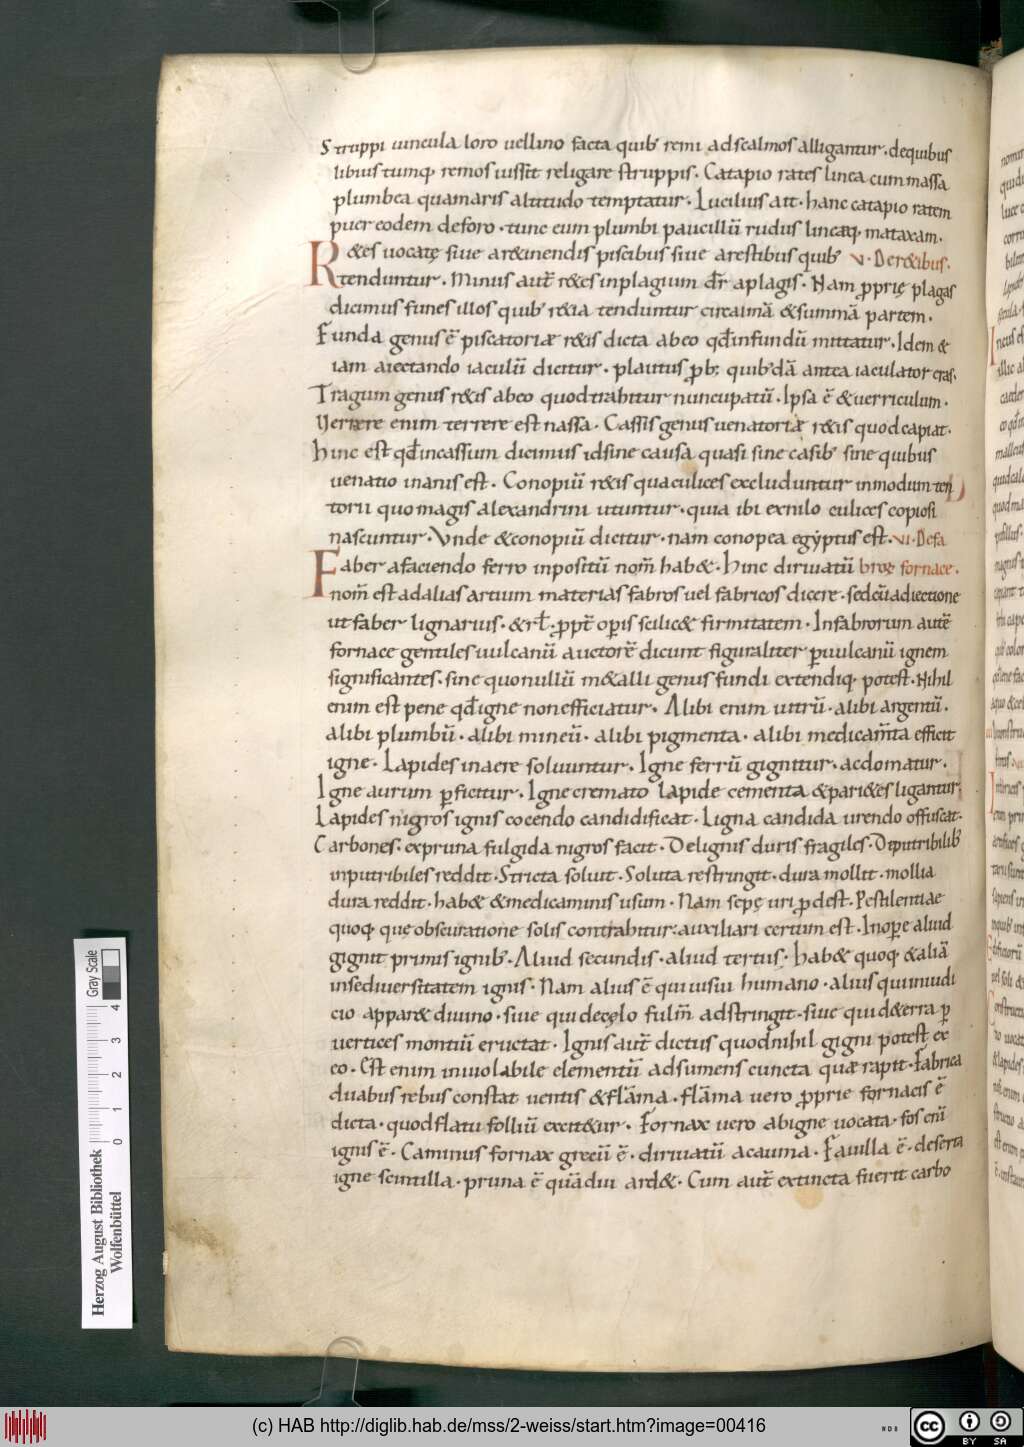 Struppi uincula loro uel lino facta quib' remi ad scalmos alligantur. de quibus
libius tumq; remos iussit religare struppis. Catapio rates linea cum massa
plumbea qua maris altitudo temptatur. Lucilius ait. hanc catapio ratem
puer eodem deforo. tunc eum plumbi paucillū rudus lineaq; mataxam.
R&es uocatę siue ar&inendis piscibus siue arestibus quib' v. De r&ibus.
tenduntur. Minus aut̄ r&es inplagium dr̄ aplagis. Nam ꝓprię plagas
dicimus funes illos quib' r&ia tenduntur circa imā & summā partem.
Funda genus ē piscatoriæ r&is dicta abeo qđ infundū mittatur. Idem &
iam aiectando iaculū dicitur. plautus ꝓb; quib'dā antea iaculator eras.
Tragum genus r&is abeo quod trahitur nuncupatū. Ipsa ē & uerriculum.
Verrere enim terrere est nassa. Cassis genus uenatoriæ r&is quod capiat.
hinc est qđ incassum dicimus id sine causa quasi sine casib' sine quibus
uenatio inanis est. Conopiū r&is qua culices excluduntur inmodum ten
torii quo magis alexandrini utuntur. quia ibi exnilo culices copiosi
nascuntur. Vnde & conopiū dicitur. nam conopea egyptus est. vi. De fa
Faber afaciendo ferro inpositū nom̄ hab&. hinc diriuatū bros fornace.
nom̄ est ad alias artium materias fabros uel fabricos dicere. sed cū adiectione
ut faber lignarius. & rł. ꝓpt̄ operis scilic& firmitatem. In fabrorum autē
fornace gentiles uulcanū auctorē dicunt figuraliter ꝑ uulcanū ignem
significantes. sine quo nullū m&alli genus fundi extendiq; potest. Nihil
enim est pene qđ igne non efficiatur. Alibi enim uitrū. alibi argentū.
alibi plumbū. alibi mineū. alibi pigmenta. alibi medicam̄ta efficit
igne. Lapides in aere soluuntur. Igne ferrū gignitur. ac domatur.
Igne aurum ꝑficitur. Igne cremato lapide cementa & pari&es ligantur
Lapides nigros ignis cocendo candidificat. Ligna candida urendo offuscat.
Carbones. ex pruna fulgida nigros facit. De lignis duris fragiles. De putribilib'
inputribiles reddit. Stricta soluit. Soluta restringit. dura mollit. mollia
dura reddit. hab& & medicaminis usum. Nam sepę uri ꝓdest. Pestilentiae
quoq; quę obscuratione solis contrahitur. auxiliari certum est. Inope aliud
gignit primis ignib'. Aliud secundis. aliud tertiis. hab& quoq; & aliā
in se diuersitatem ignis. Nam alius ē qui usui humano. alius qui iudi
cio appar& diuino. siue qui de cęlo fulm̄ adstringit. siue qui d&erra ꝑ
uertices montiū eructat. Ignis aut̄ dictus quod nihil gigni potest ex
eo. Est enim inuiolabile elementū adsumens cuncta quæ rapit. Fabrica
duabus rebus constat uentis & flāma. flāma uero ꝓprie fornacis ē
dicta. quod flatu folliū excit&ur. Fornax uero abigne uocata. fos enī
ignis ē. Caminus fornax grecū ē. diriuatū acauma. Fauilla ē. deserta
igne scintilla. pruna ē quādiu ard&. Cum aut̄ extincta fuerit carbo
Gray Scale
0 1 2 3 4
Herzog August Bibliothek
Wolfenbüttel
(c) HAB http://diglib.hab.de/mss/2-weiss/start.htm?image=00416
WDB
cc BY SA